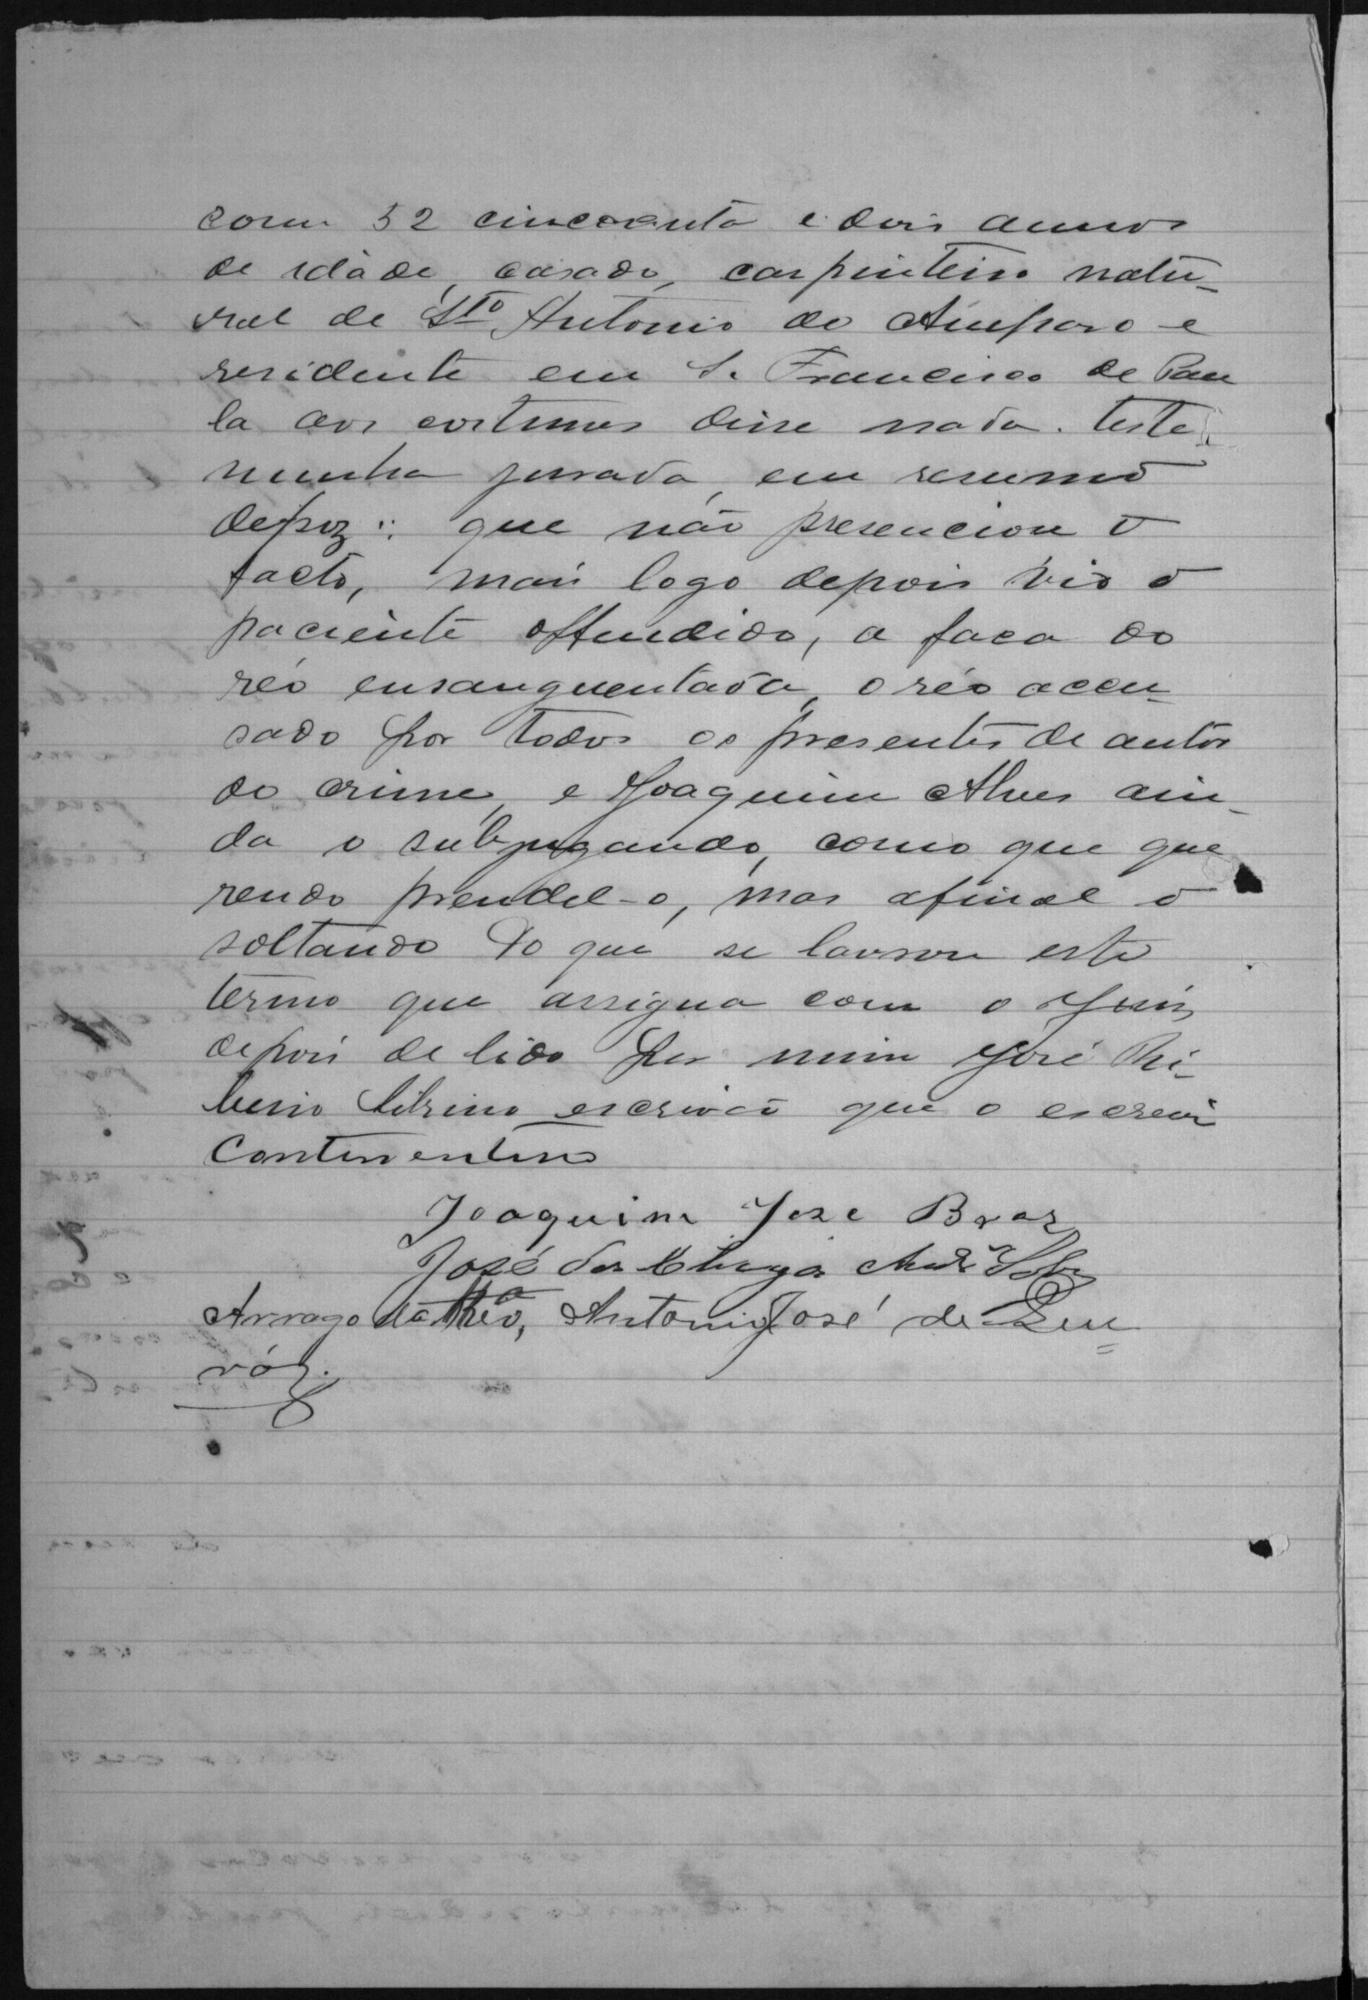 com 52 cincoenta e dois annos
de idade, casado, carpinteiro natu-
ral de Sto Antonio do Amparo e
residente em S. Francisco de Pau
la aos costumes disse nada. teste
munha jurada, em resumo
depoz: que não presenciou o
facto, mais logo depois vio o
paciente offendido, a faca do
réo ensanguentada, o réo accu-
sado por todos os presentes de autor
do crime, e Joaquim Alves ain-
da o subjugando, como que que
rendo prendel-o, mas afinal o
soltando Do que se lavrou este
termo que assigna com o Juis,
depois de lido por mim José Ri-
beiro escrivão que o escrevi
Joaquim Jose Braz
José das Chagas
Arrogo do Réo, Antonio José de Quei-
róz.